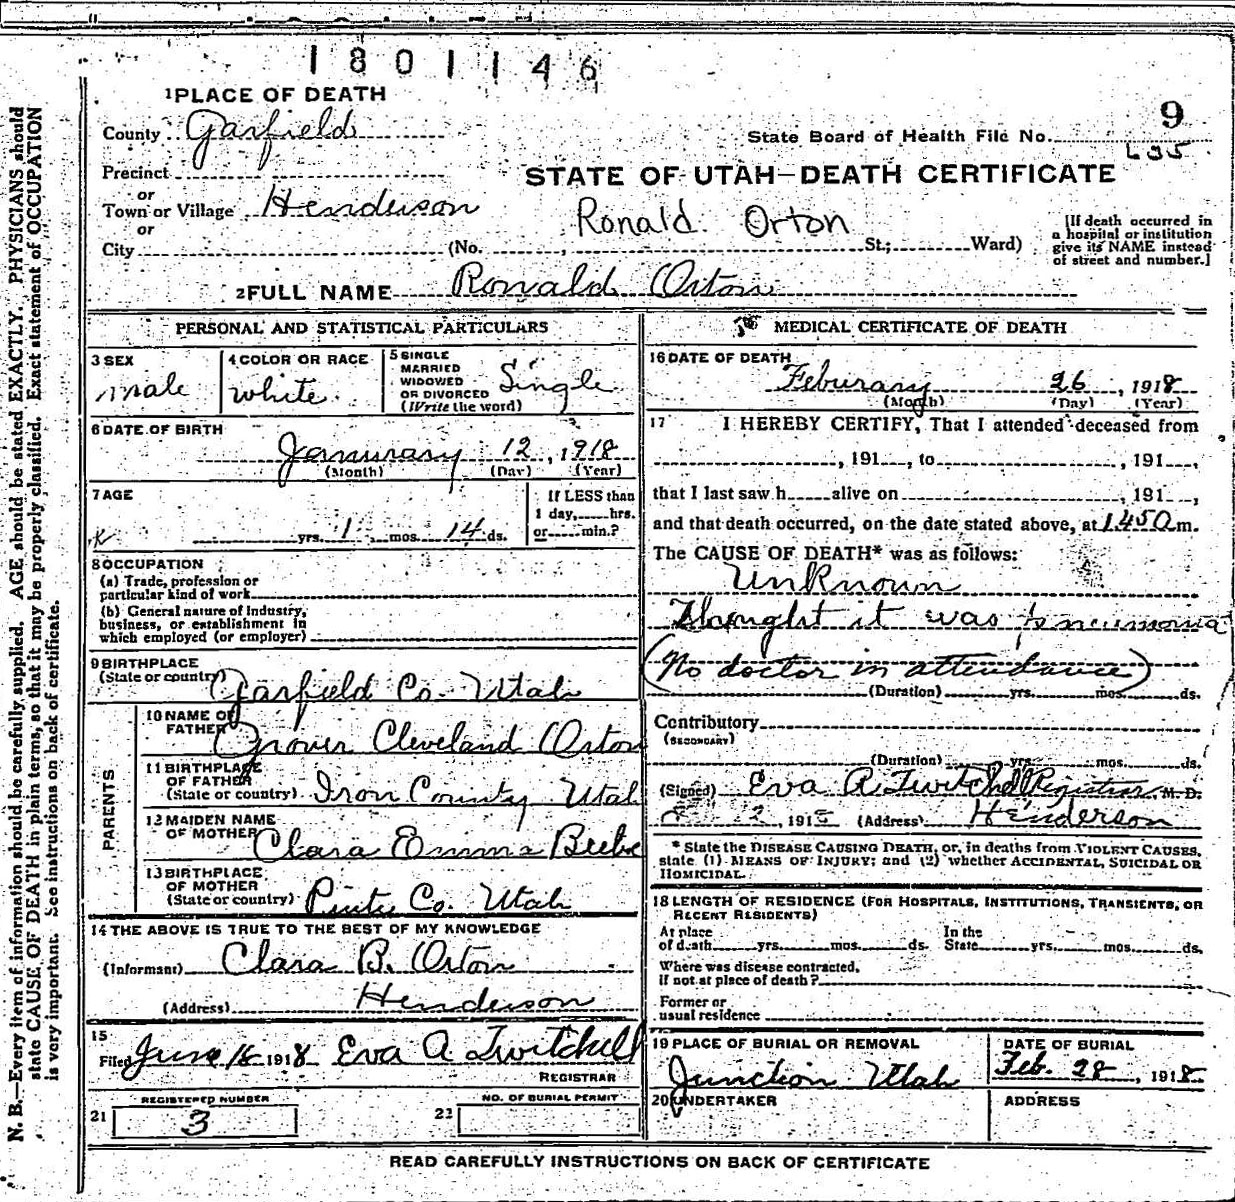 1801146
1 PLACE OF DEATH
9
County Garfield
State Board of Health File No.
Precinct
STATE OF UTAH—DEATH CERTIFICATE
or
Town or Village Henderson
Ronald Orton
or
City (No. , St.; Ward)
[If death occurred in
a hospital or institution
give its NAME instead
of street and number.]
2 FULL NAME Ronald Orton
PERSONAL AND STATISTICAL PARTICULARS
3 SEX
male
4 COLOR OR RACE
white
5 SINGLE
MARRIED
WIDOWED
OR DIVORCED
(Write the word)
Single
6 DATE OF BIRTH
Janurary 12, 1918
(Month) (Day) (Year)
7 AGE
yrs. 1 mos. 14 ds.
If LESS than
1 day, hrs.
or min.?
8 OCCUPATION
(a) Trade, profession or
particular kind of work
(b) General nature of Industry,
business, or establishment in
which employed (or employer)
9 BIRTHPLACE
(State or country)
Garfield Co. Utah
PARENTS
10 NAME OF
FATHER
Grover Cleveland Orton
11 BIRTHPLACE
OF FATHER
(State or country) Iron County Utah
12 MAIDEN NAME
OF MOTHER
Clara Emma Beebe
13 BIRTHPLACE
OF MOTHER
(State or country) Piute Co. Utah
14 THE ABOVE IS TRUE TO THE BEST OF MY KNOWLEDGE
(Informant) Clara B. Orton
(Address) Henderson
15
Filed June 18 1918 Eva A Twitchell
REGISTRAR
REGISTERED NUMBER
21 3
NO. OF BURIAL PERMIT
22
MEDICAL CERTIFICATE OF DEATH
16 DATE OF DEATH
Feburary 26, 1918
(Month) (Day) (Year)
17 I HEREBY CERTIFY, That I attended deceased from
, 191 , to , 191 ,
that I last saw h alive on , 191 ,
and that death occurred, on the date stated above, at 1450 m.
The CAUSE OF DEATH* was as follows:
Unknown
Thought it was pneumonia
(No doctor in attendance)
(Duration) yrs. mos. ds.
Contributory
(SECONDARY)
(Duration) yrs. mos. ds.
(Signed) Eva A Twitchell Registrar, M. D.
2, 191 (Address) Henderson
* State the DISEASE CAUSING DEATH, or, in deaths from VIOLENT CAUSES,
state (1) MEANS OF INJURY; and (2) whether ACCIDENTAL, SUICIDAL OR
HOMICIDAL.
18 LENGTH OF RESIDENCE (FOR HOSPITALS, INSTITUTIONS, TRANSIENTS, OR
RECENT RESIDENTS)
At place
of death yrs. mos. ds.
In the
State yrs. mos. ds.
Where was disease contracted,
if not at place of death?
Former or
usual residence
19 PLACE OF BURIAL OR REMOVAL
Junction Utah
DATE OF BURIAL
Feb. 28, 1918
20 UNDERTAKER
ADDRESS
READ CAREFULLY INSTRUCTIONS ON BACK OF CERTIFICATE
N. B.—Every item of information should be carefully supplied. AGE should be stated EXACTLY. PHYSICIANS should
state CAUSE OF DEATH in plain terms, so that it may be properly classified. Exact statement of OCCUPATION
is very important. See instructions on back of certificate.